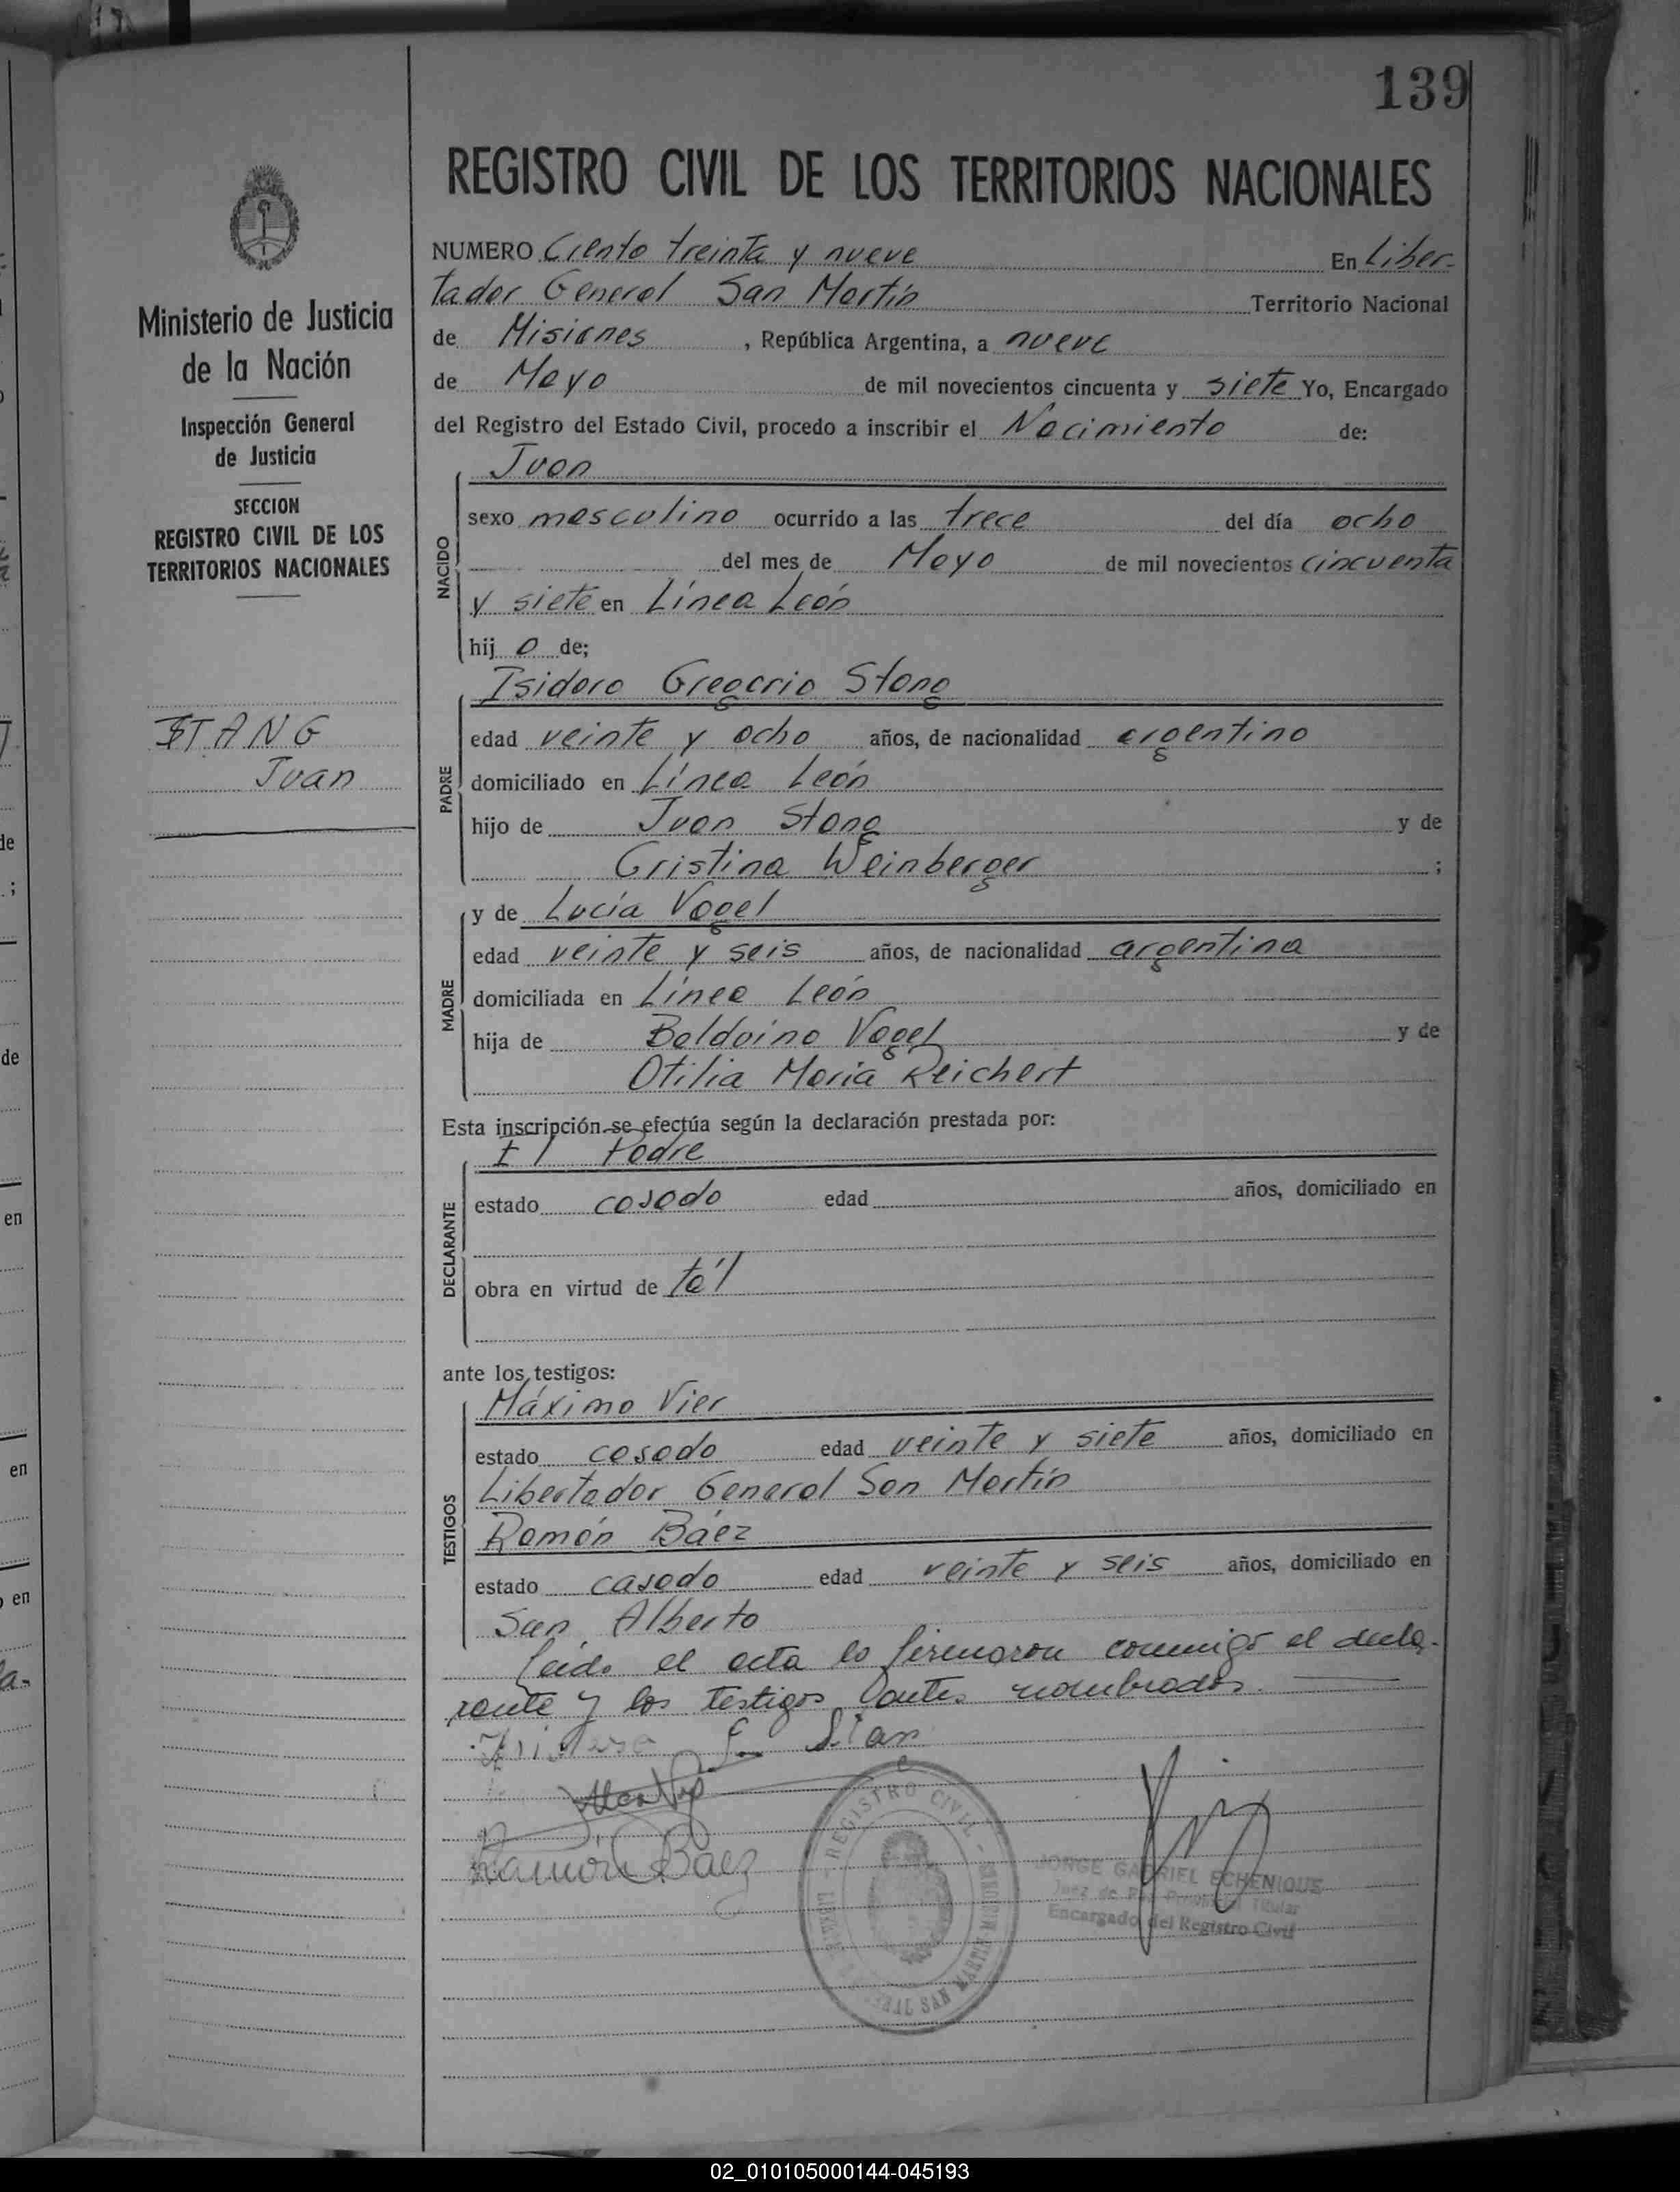 139
REGISTRO CIVIL DE LOS TERRITORIOS NACIONALES
Ministerio de Justicia
de la Nación
Inspección General
de Justicia
SECCION
REGISTRO CIVIL DE LOS
TERRITORIOS NACIONALES
STANG
Juan
NUMERO Ciento treinta y nueve En Liber-
tador General San Martín Territorio Nacional
de Misiones, República Argentina, a nueve
de Mayo de mil novecientos cincuenta y siete Yo, Encargado
del Registro del Estado Civil, procedo a inscribir el Nacimiento de:
Juan
NACIDO
sexo masculino ocurrido a las trece del día ocho
del mes de Mayo de mil novecientos cincuenta
y siete en Línea León
hij o de;
Isidoro Gregorio Stang
PADRE
edad veinte y ocho años, de nacionalidad argentino
domiciliado en Línea León
hijo de Juan Stang y de
Cristina Weinberger ;
y de Lucía Vogel
MADRE
edad veinte y seis años, de nacionalidad argentina
domiciliada en Línea León
hija de Balduino Vogel y de
Otilia María Reichert
Esta inscripción se efectúa según la declaración prestada por:
El Padre
DECLARANTE
estado casado edad años, domiciliado en
obra en virtud de tál
ante los testigos:
Máximo Vier
TESTIGOS
estado casado edad veinte y siete años, domiciliado en
Libertador General San Martín
Ramón Báez
estado casado edad veinte y seis años, domiciliado en
San Alberto
Leída el acta la firmaron conmigo el decla-
rante y los testigos antes nombrados.
Stang
Ramón Báez
REGISTRO CIVIL
JORGE GABRIEL ECHENIQUE
Juez de Paz Titular
Encargado del Registro Civil
de
;
de
en
en
en
02_010105000144-045193